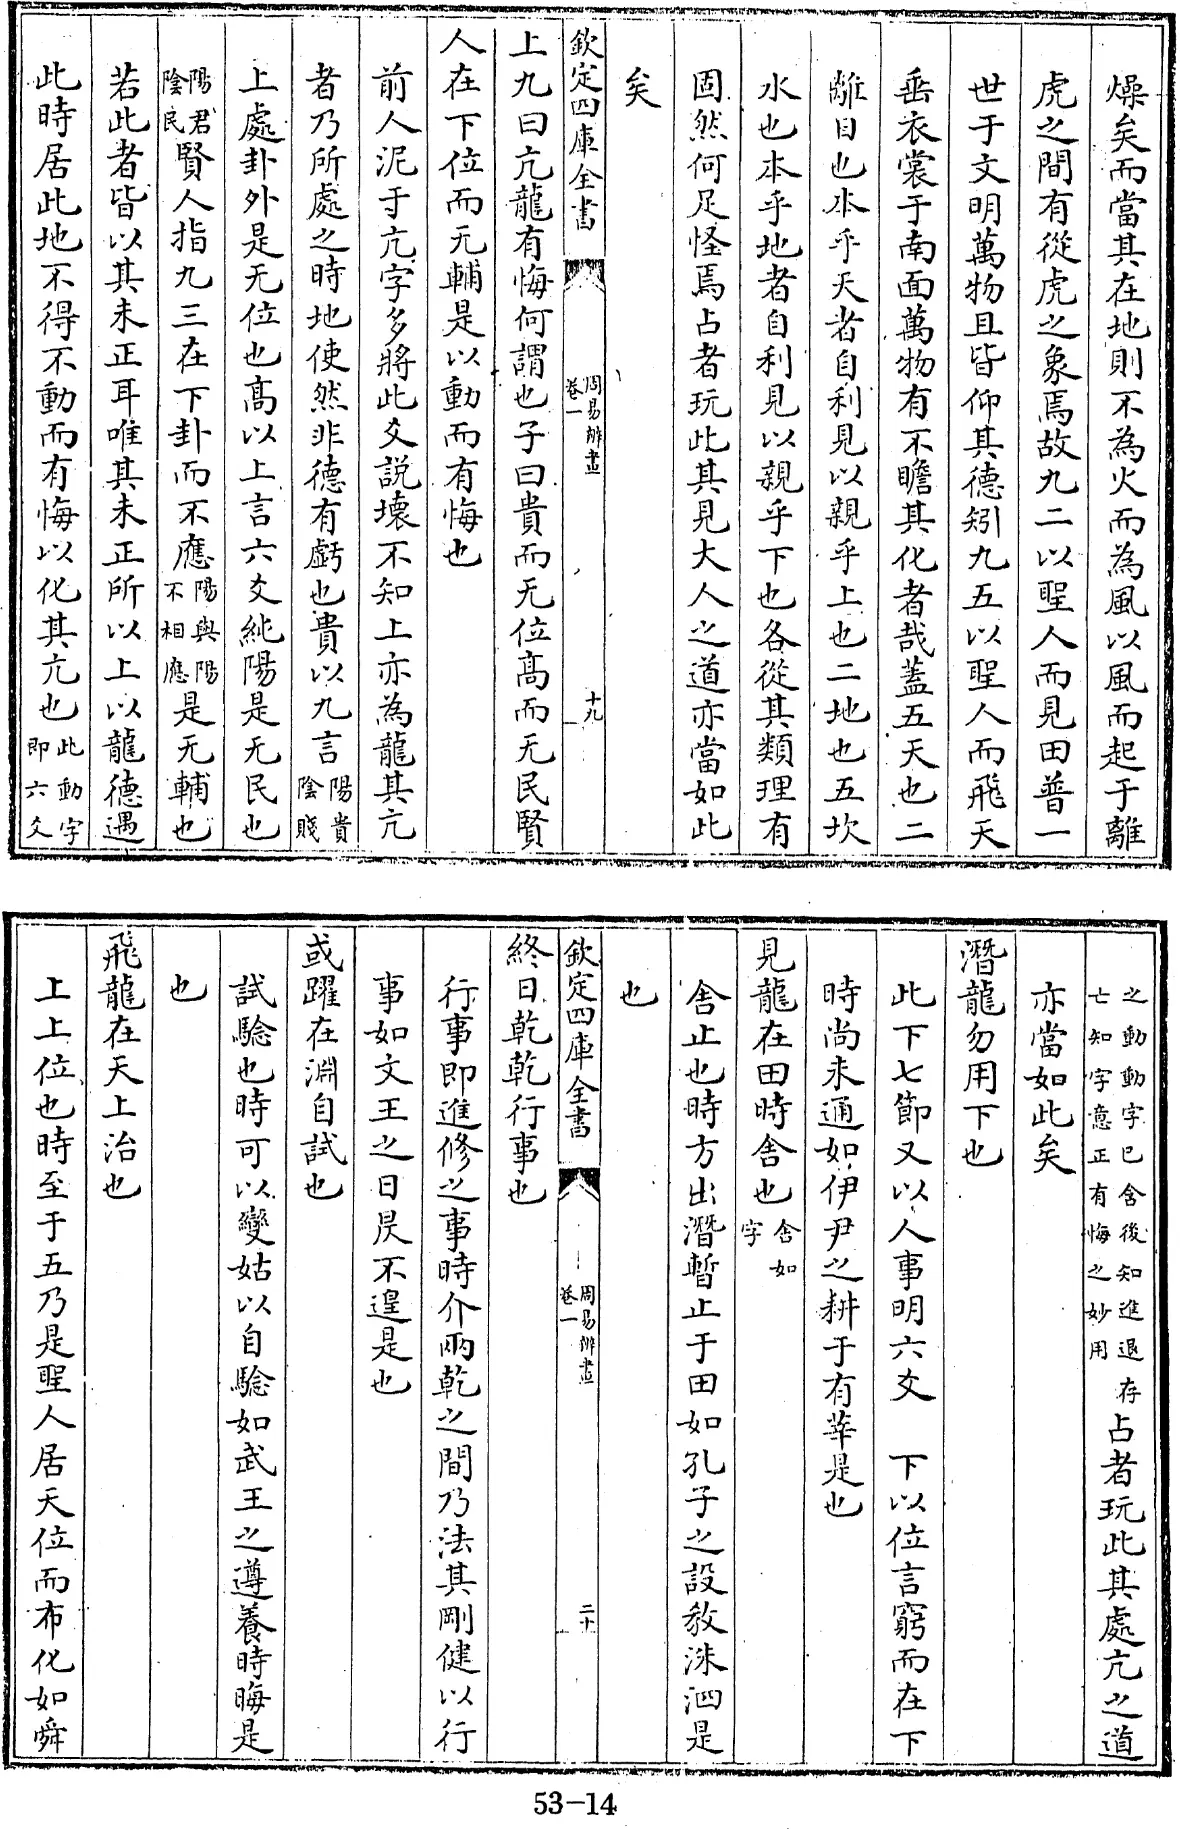 燥矣而當其在地則不為火而為風以風而起于離
虎之間有從虎之象焉故九二以聖人而見田普一
世于文明萬物且皆仰其德矧九五以聖人而飛天
垂衣裳于南面萬物有不瞻其化者哉蓋五天也二
離目也本乎天者自利見以親乎上也二地也五坎
水也本乎地者自利見以親乎下也各從其類理有
固然何足怪焉占者玩此其見大人之道亦當如此
矣
欽定四庫全書 周易辨畫 卷一 十九
上九曰亢龍有悔何謂也子曰貴而无位髙而无民賢
人在下位而无輔是以動而有悔也
前人泥于亢字多將此爻説壞不知上亦為龍其亢
者乃所處之時地使然非德有虧也貴以九言陽貴陰賤
上處卦外是无位也髙以上言六爻純陽是无民也
陽君陰民賢人指九三在下卦而不應陽與陽不相應是无輔也
若此者皆以其未正耳唯其未正所以上以龍德遇
此時居此地不得不動而有悔以化其亢也此動字即六爻
之動動字已含後知進退存亡知字意正有悔之妙用占者玩此其處亢之道
亦當如此矣
潛龍勿用下也
此下七節又以人事明六爻 下以位言窮而在下
時尚未通如伊尹之耕于有莘是也
見龍在田時舍也舍如字
舍止也時方出潛暫止于田如孔子之設教洙泗是
也
欽定四庫全書 周易辨畫 卷一 二十
終日乾乾行事也
行事即進修之事時介兩乾之間乃法其剛健以行
事如文王之日昃不遑是也
或躍在淵自試也
試驗也時可以變姑以自驗如武王之遵養時晦是
也
飛龍在天上治也
上上位也時至于五乃是聖人居天位而布化如舜
53-14